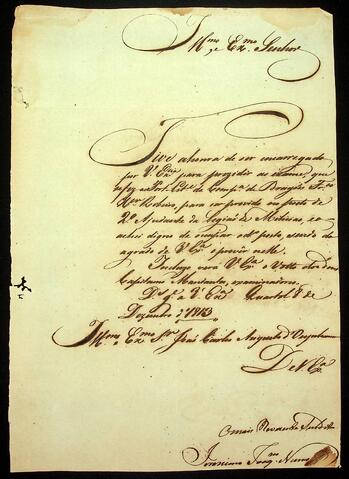 Illmo e Exmo Senhor
Tive a honra de ser encarregado
por V. Exa para prezidir ao exame, que
se fez ao Port. Esta. da Compa. de
para ser provido no posto de
2º Ajudante da Legião de Milicias, e o
achei digno de occupar este posto, sendo do
agrado de V. Exa provêr nelle.
Incluzo verá V. Exa o Voto dos dous
Capitaens Mandantes, examinadores.
Ds. ge. a V. Exa Quartel 8 de
Dezembro 1813
Illmo e Exmo Snr. João Carlos Augusto d'Oeynhausen
De V. Exa
O mais Reverente Subdito
Jeronimo Joaqm. Nunes